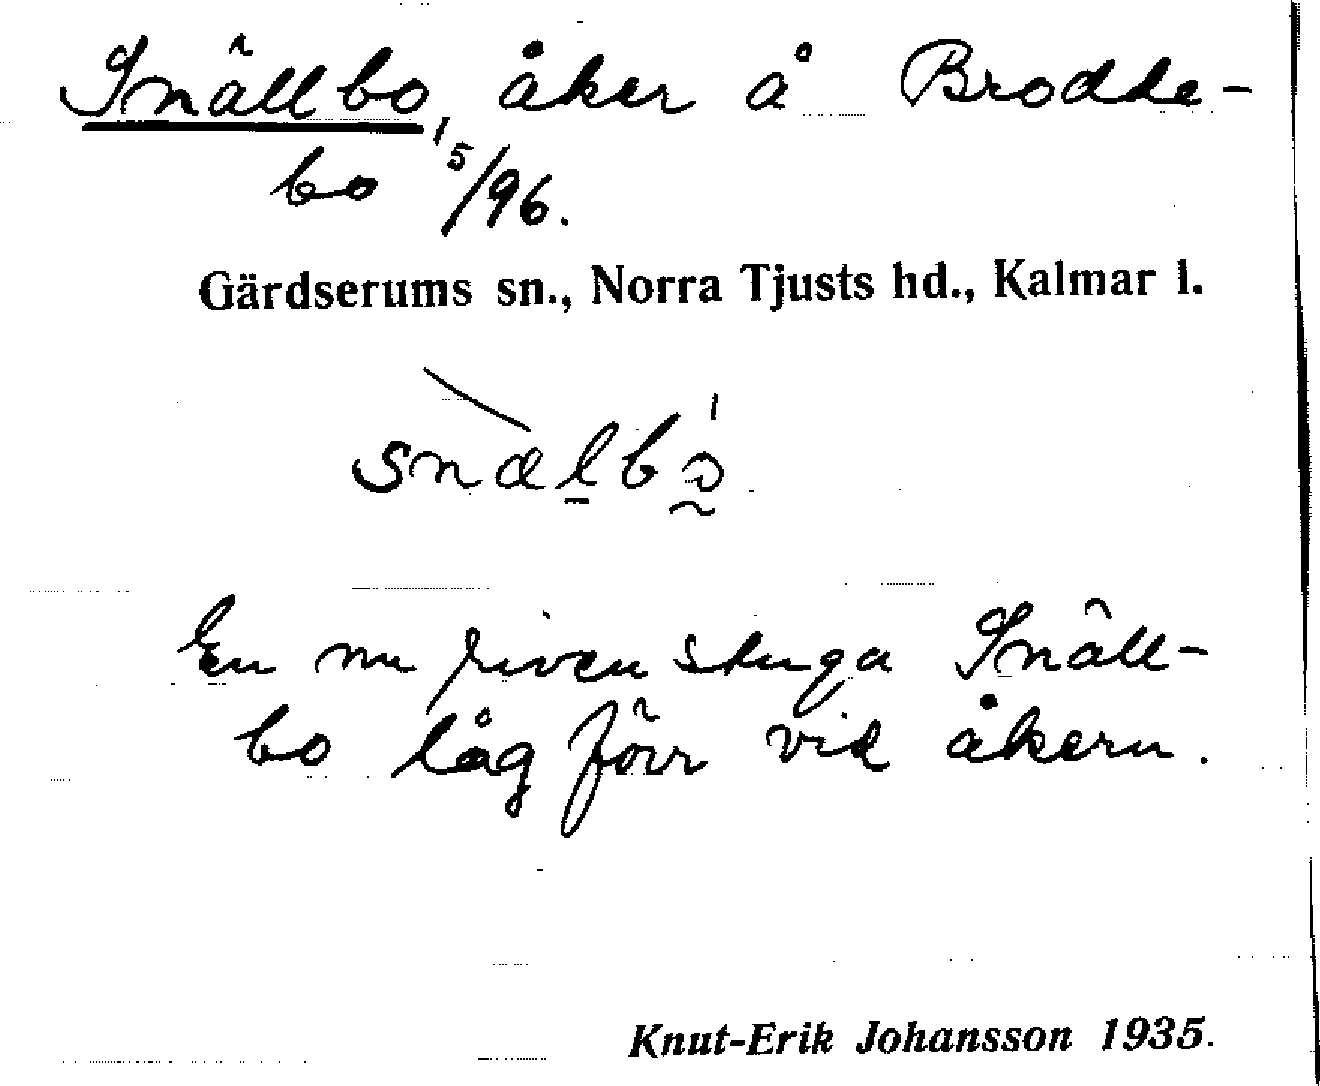 Snällbo, åker å Brodde-
bo 5/96.
Gärdserums sn., Norra Tjusts hd., Kalmar l.
snælbɔ
En nu riven stuga Snäll-
bo låg förr vid åkern.
Knut-Erik Johansson 1935.